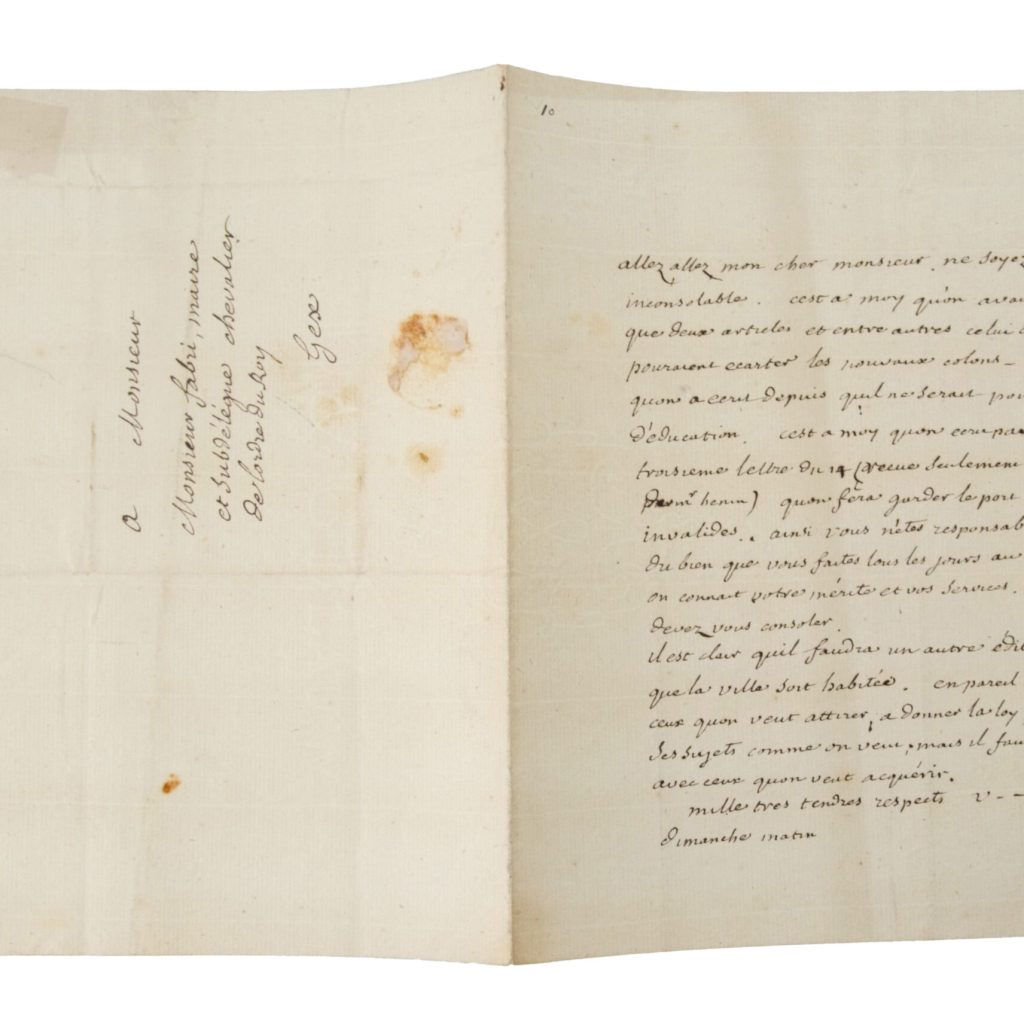 a Monsieur
Monsieur fabri, maire
et subdélégué chevalier
de lordre du Roy
Gex
10
allez allez mon cher monsieur, ne soyez
inconsolable. cest a moy qu'on avai
que deux articles et entre autres celui
pouraient ecarter les nouvaux colons_
quon a ecrit depuis quil ne serait poi
d'éducation. cest a moy quon ecri pa
troisieme lettre du 14 (recue seulement
de mr henin) quon fera garder le port
invalides.. ainsi vous n'etes responsab
du bien que vous faites tous les jours au
on connait votre mérite et vos services.
devez vous consoler.
il est clair quil faudra un autre édit
que la ville soit habitée. en pareil
ceux quon veut attirer, a donner la loy
ses sujets comme on veut, mais il fau
avec ceux quon veut acquérir.
mille tres tendres respects V--
dimanche matin